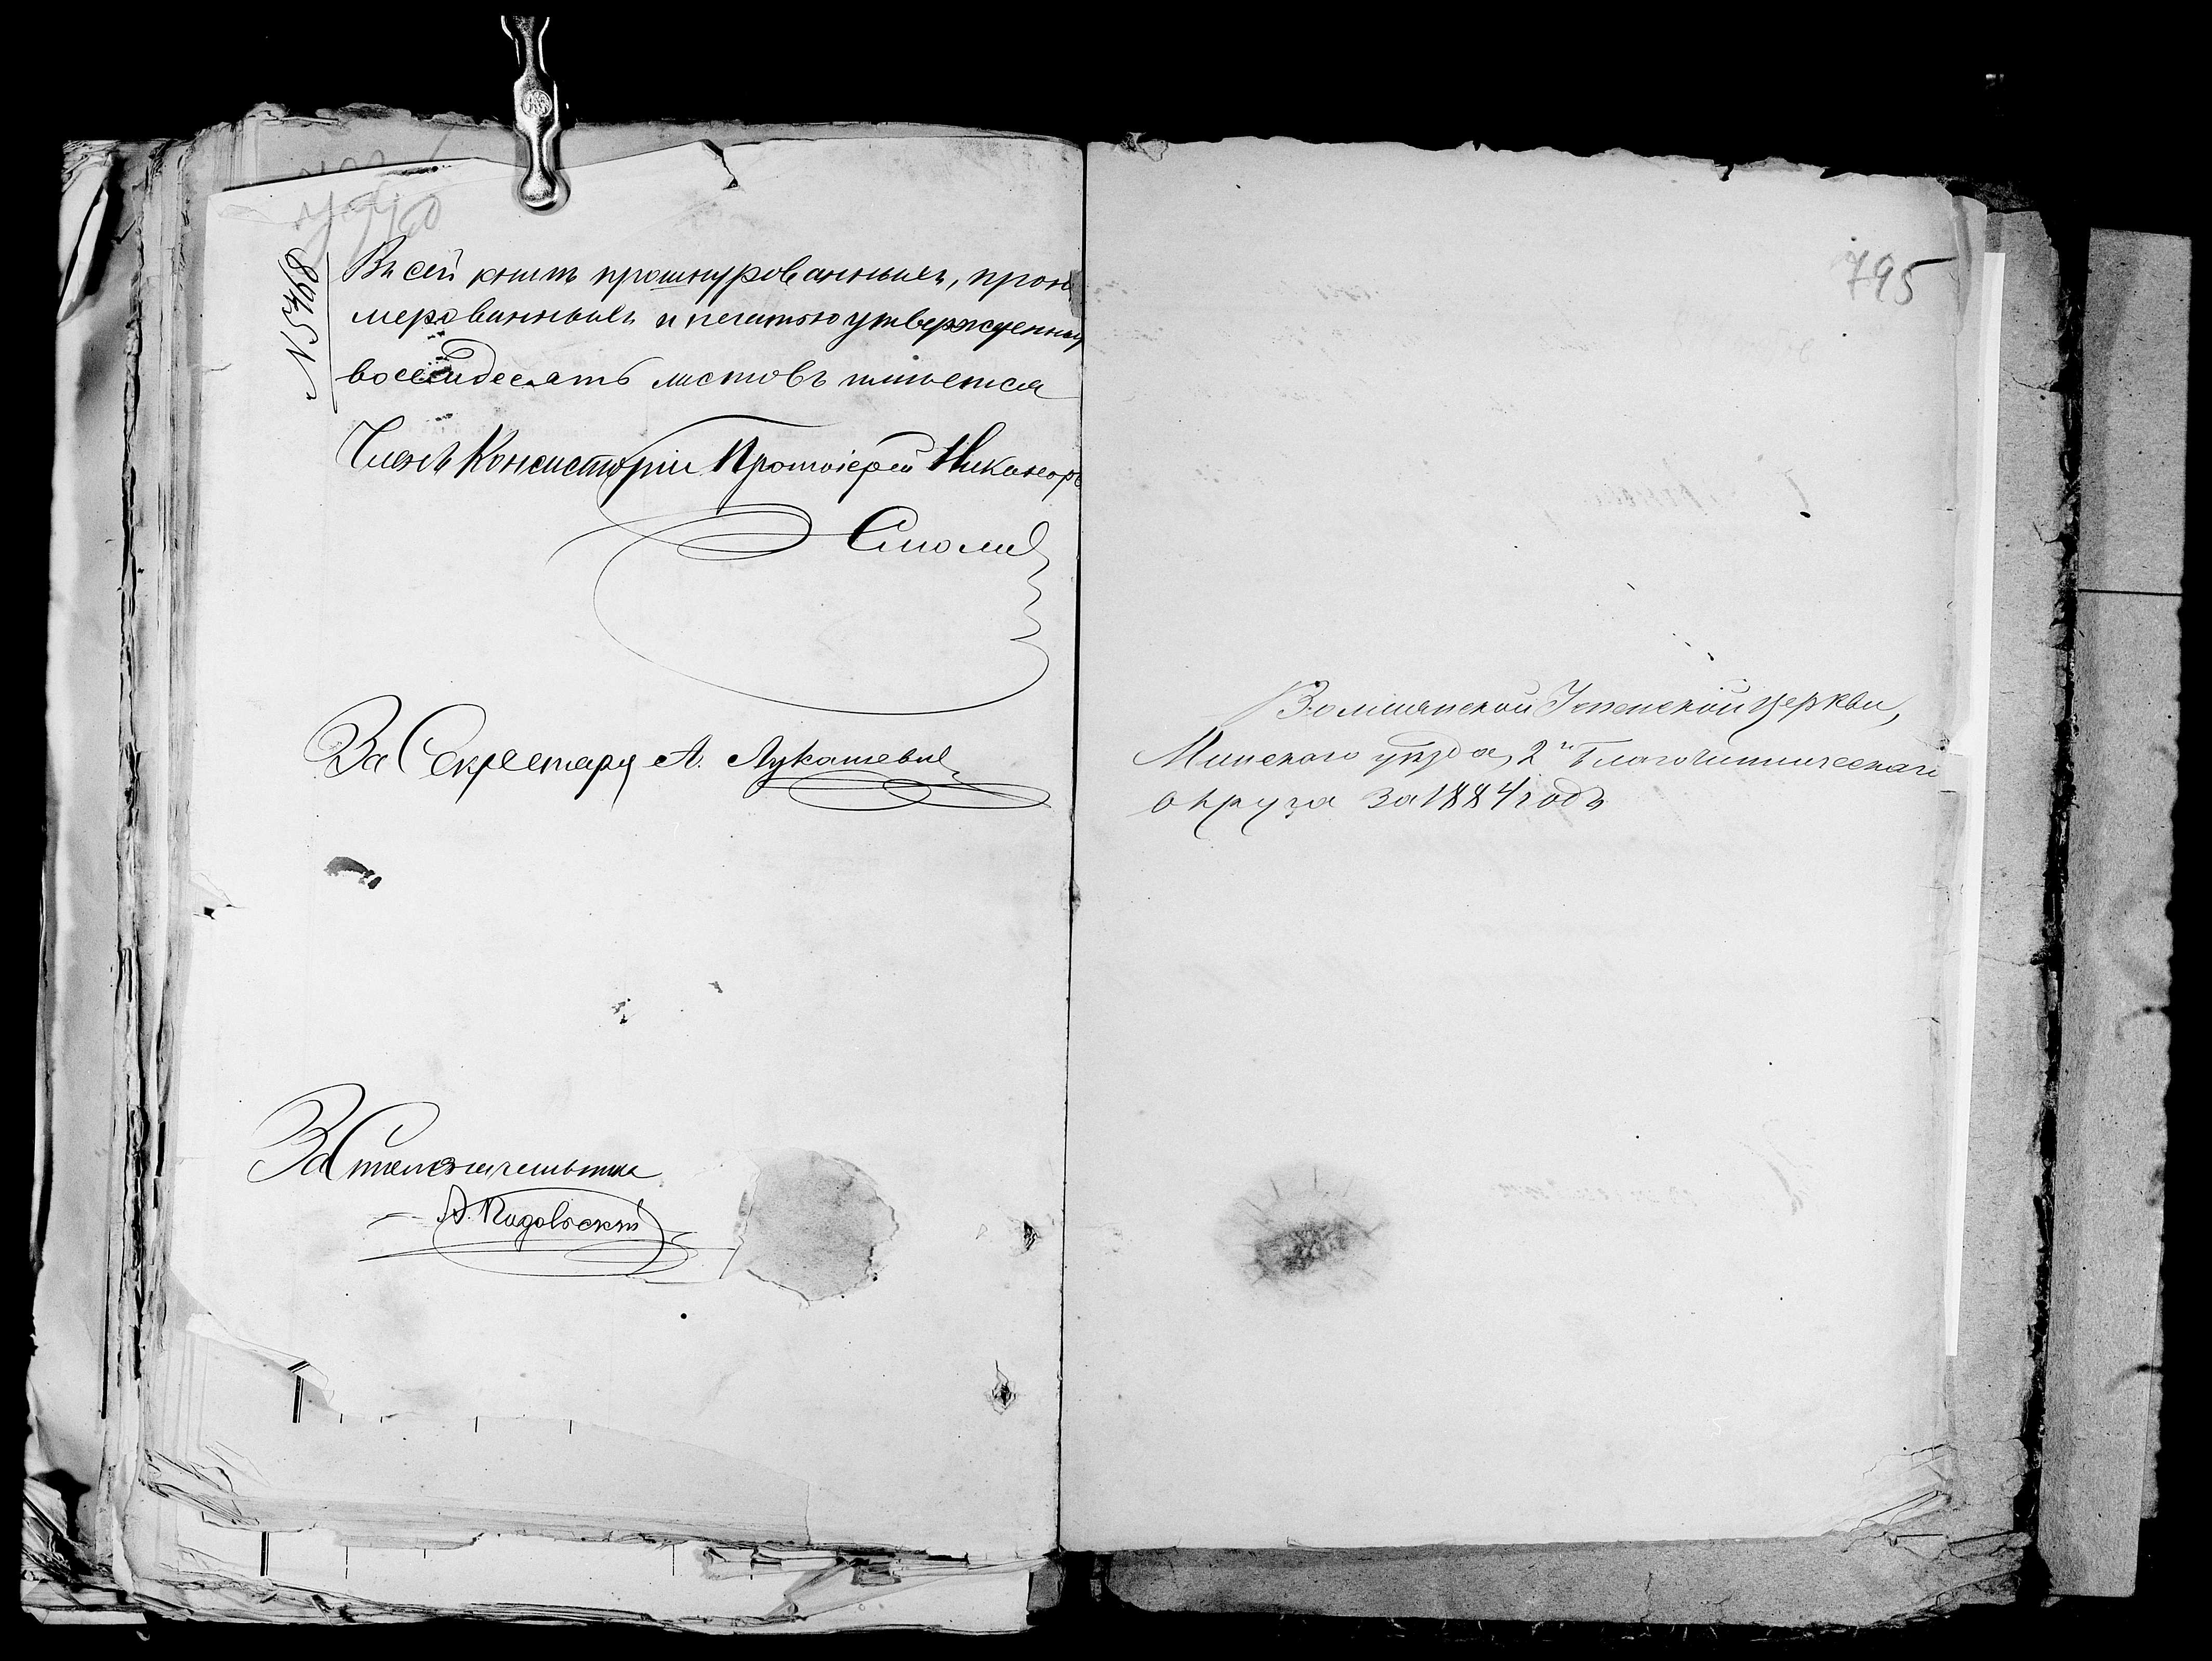 № 5768
Въ сей книгѣ прошнурованныхъ, прону
мерованныхъ и печатью утвержденныхъ
восемдесятъ листовъ имѣется
Членъ Консисторіи Протоіерей Никаноръ
Смоличъ
За Секретаря А. Лукашевич
За Столоначальника
795
Волчанской Успенской церкви,
Минскаго уѣзда, 2го Благочинническаго
округа за 1884 годъ